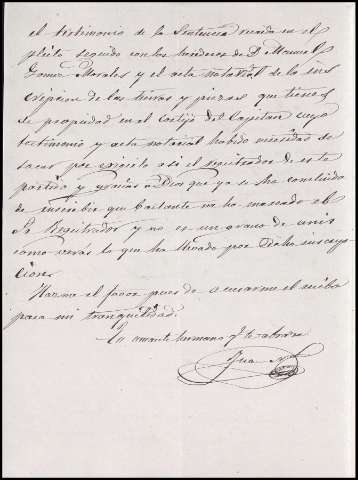 el testimonio de la Sentencia recaida en el
pleito seguido con los herederos de D. Manuel
Gomez Morales y el acta notarial de la ins
cripcion de las tierras y piezas que tienes
de propiedad en el Cortijo del Capitan cuyo
testimonio y acta notarial habido necesidad de
sacar por exigirlo asi el registrador de este
partido y gracias a Dios que ya se ha concluido
de inscribir que bastante na ha mareado el
Sr. Registrador y no es un grano de anis
como verás lo que ha llevado por dicha inscrip
ciones
Hazme el favor pues de acusarme el recibo
para mi tranquilidad.
Tu amante hermano q. te abraza
Jua